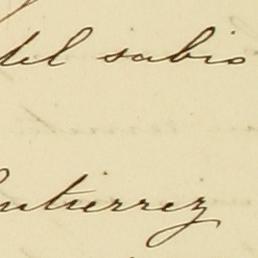 del sabio
Gutierrez